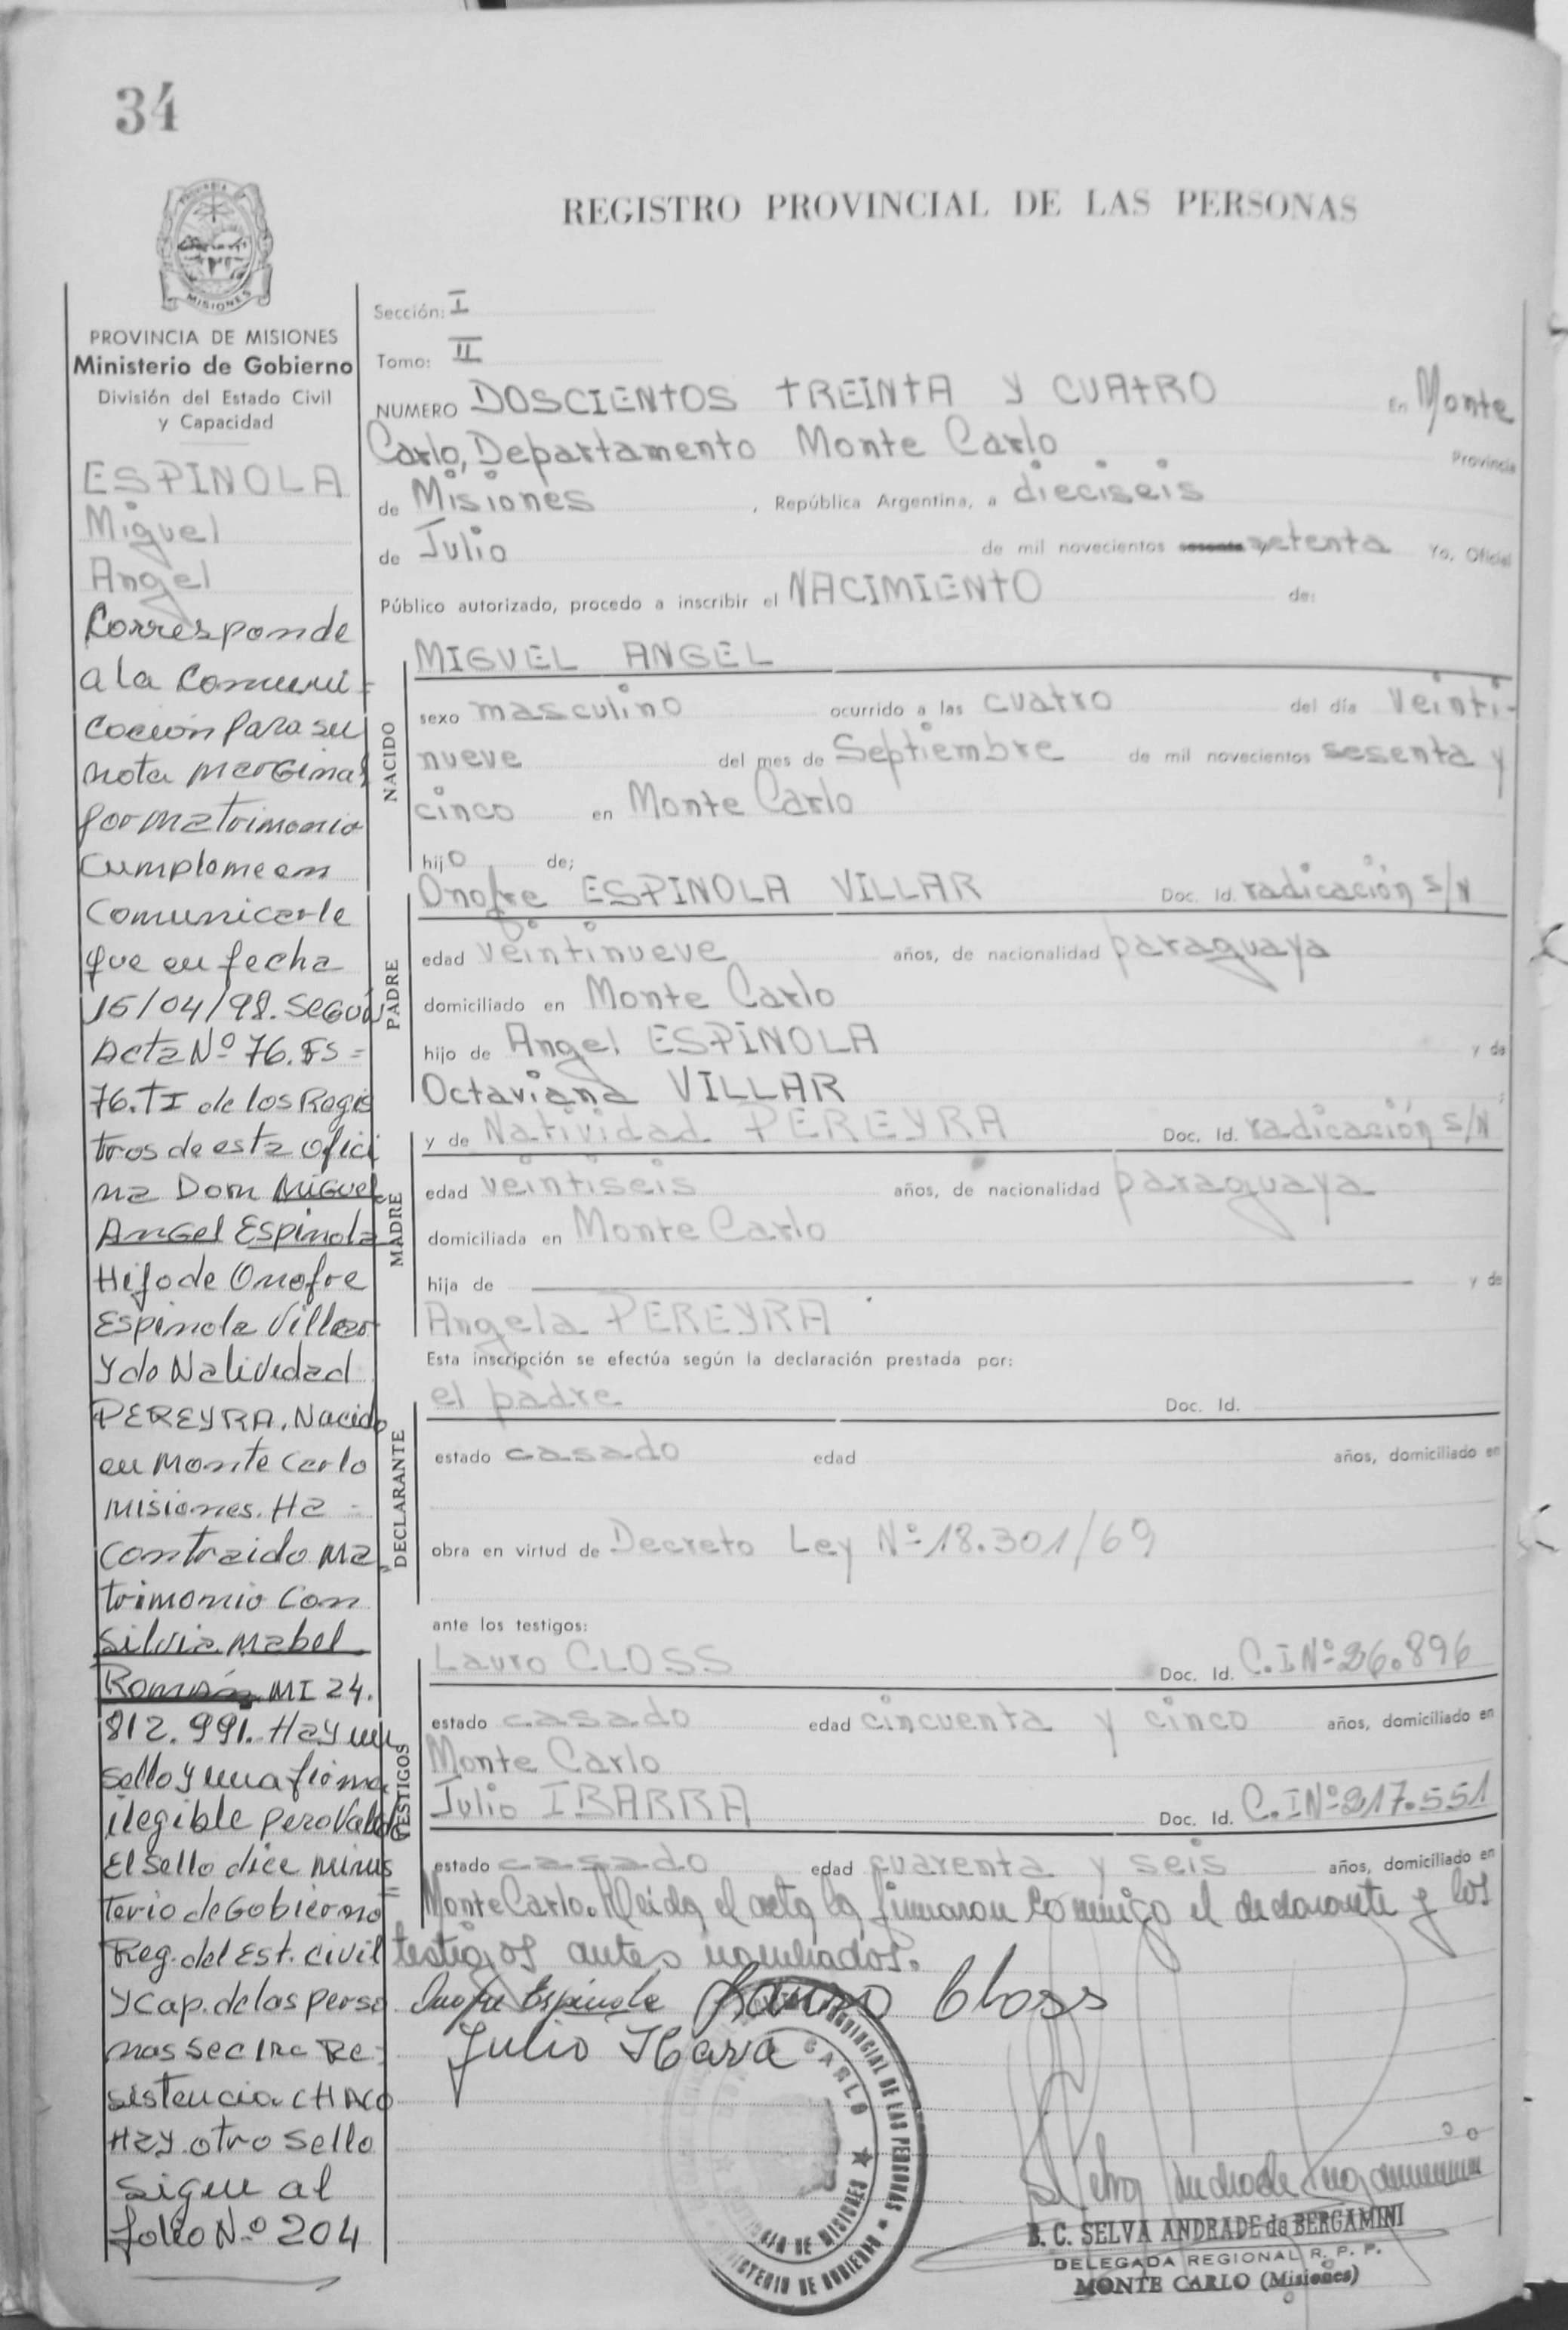 34
REGISTRO PROVINCIAL DE LAS PERSONAS
MISIONES
PROVINCIA DE MISIONES
Ministerio de Gobierno
División del Estado Civil
y Capacidad
ESPINOLA
Miguel
Angel
Corresponde
a la Comuni=
cación para su
nota marginal
por matrimonio
cumplome en
comunicarle
que en fecha
16/04/98. Según
Acta Nº 76. Fs=
76. TI de los Regis
tros de esta ofici
na Don Miguel
Angel Espinola
Hijo de Onofre
Espinola Villar
y de Natividad
PEREYRA. Nacido
en Monte Carlo
Misiones. Ha=
contraido Ma=
trimonio con
Silvia Mabel
Román MI 24.
812.991. Hay un
sello y una firma
ilegible pero válida
El sello dice Minis=
terio de Gobierno
Reg. del Est. Civil
y Cap. de las perso
nas Sec 1ra Re=
sistencia CHACO
Hay otro sello
sigue al
folio Nº 204
Sección: I
Tomo: II
NUMERO DOSCIENTOS TREINTA Y CUATRO En Monte
Carlo, Departamento Monte Carlo Provincia
de Misiones, República Argentina, a dieciseis
de Julio de mil novecientos sesenta y setenta Yo, Oficial
Público autorizado, procedo a inscribir el NACIMIENTO de:
NACIDO
MIGUEL ANGEL
sexo masculino ocurrido a las cuatro del día veinti-
nueve del mes de Septiembre de mil novecientos sesenta y
cinco en Monte Carlo
hijo de;
PADRE
Onofre ESPINOLA VILLAR Doc. Id. radicación s/N
edad veintinueve años, de nacionalidad paraguaya
domiciliado en Monte Carlo
hijo de Angel ESPINOLA y de
Octaviana VILLAR
MADRE
y de Natividad PEREYRA Doc. Id. radicación s/N
edad veintiseis años, de nacionalidad paraguaya
domiciliada en Monte Carlo
hija de y de
Angela PEREYRA
Esta inscripción se efectúa según la declaración prestada por:
DECLARANTE
el padre Doc. Id.
estado casado edad años, domiciliado en
obra en virtud de Decreto Ley Nº 18.301/69
ante los testigos:
TESTIGOS
Lauro CLOSS Doc. Id. C.I Nº 26.896
estado casado edad cincuenta y cinco años, domiciliado en
Monte Carlo
Julio IBARRA Doc. Id. C.I Nº 217.551
estado casado edad cuarenta y seis años, domiciliado en
Monte Carlo. Leida el acta la firmaron conmigo el declarante y los
testigos antes nombrados.
Onofre Espinola Lauro Closs
Julio Ibara
B. C. SELVA ANDRADE de BERGAMINI
DELEGADA REGIONAL R. P. P.
MONTE CARLO (Misiones)